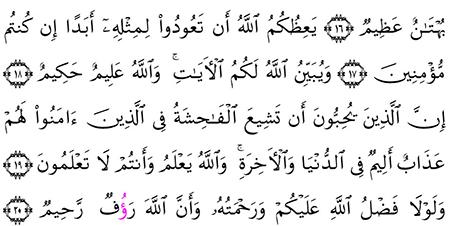 بُهْتَـٰنٌ عَظِيمٌ ﴿١٦﴾ يَعِظُكُمُ اللَّهُ أَن تَعُودُوا۟ لِمِثْلِهِۦٓ أَبَدًا إِن كُنتُم
مُّؤْمِنِينَ ﴿١٧﴾ وَيُبَيِّنُ اللَّهُ لَكُمُ الْـَٔايَـٰتِ ۚ وَاللَّهُ عَلِيمٌ حَكِيمٌ ﴿١٨﴾
إِنَّ الَّذِينَ يُحِبُّونَ أَن تَشِيعَ الْفَـٰحِشَةُ فِى الَّذِينَ ءَامَنُوا۟ لَهُمْ
عَذَابٌ أَلِيمٌ فِى الدُّنْيَا وَالْـَٔاخِرَةِ ۚ وَاللَّهُ يَعْلَمُ وَأَنتُمْ لَا تَعْلَمُونَ ﴿١٩﴾
وَلَوْلَا فَضْلُ اللَّهِ عَلَيْكُمْ وَرَحْمَتُهُۥ وَأَنَّ اللَّهَ رَءُوفٌ رَّحِيمٌ ﴿٢٠﴾